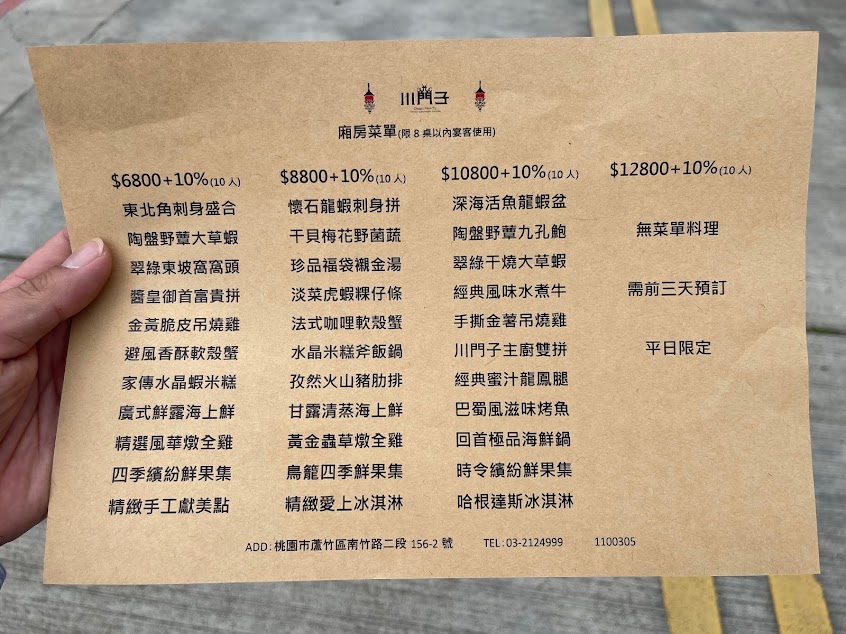 川門子
廂房菜單(限 8 桌以內宴客使用)
$6800+10%(10 人)
東北角刺身盛合
陶盤野蕈大草蝦
翠綠東坡窩窩頭
醬皇御首富貴拼
金黃脆皮吊燒雞
避風香酥軟殼蟹
家傳水晶蝦米糕
廣式鮮露海上鮮
精選風華燉全雞
四季繽紛鮮果集
精緻手工獻美點
$8800+10%(10 人)
懷石龍蝦刺身拼
干貝梅花野菌蔬
珍品福袋襯金湯
淡菜虎蝦粿仔條
法式咖哩軟殼蟹
水晶米糕斧飯鍋
孜然火山豬肋排
甘露清蒸海上鮮
黃金蟲草燉全雞
鳥籠四季鮮果集
精緻愛上冰淇淋
$10800+10%(10 人)
深海活魚龍蝦盆
陶盤野蕈九孔鮑
翠綠干燒大草蝦
經典風味水煮牛
手撕金薯吊燒雞
川門子主廚雙拼
經典蜜汁龍鳳腿
巴蜀風滋味烤魚
回首極品海鮮鍋
時令繽紛鮮果集
哈根達斯冰淇淋
$12800+10%(10 人)
無菜單料理
需前三天預訂
平日限定
ADD:桃園市蘆竹區南竹路二段 156-2 號 TEL:03-2124999 1100305